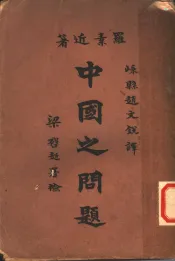 羅素近著
嵊縣趙文銳譯
中國之問題
梁啓超署檢